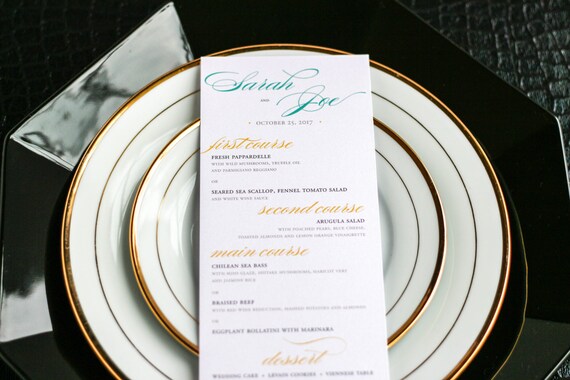 Sarah
and Joe
OCTOBER 25, 2017
first course
FRESH PAPPARDELLE
WITH WILD MUSHROOMS, TRUFFLE OIL
AND PARMIGIANO REGGIANO
OR
SEARED SEA SCALLOP, FENNEL TOMATO SALAD
AND WHITE WINE SAUCE
second course
ARUGULA SALAD
WITH POACHED PEARS, BLUE CHEESE,
TOASTED ALMONDS AND LEMON-ORANGE VINAIGRETTE
main course
CHILEAN SEA BASS
WITH MISO GLAZE, SHIITAKE MUSHROOMS, HARICOT VERT
AND JASMINE RICE
OR
BRAISED BEEF
WITH RED WINE REDUCTION, MASHED POTATOES AND
OR
EGGPLANT ROLLATINI WITH MARINARA
dessert
WEDDING CAKE • LEVAIN COOKIES • VIENNESE TABLE